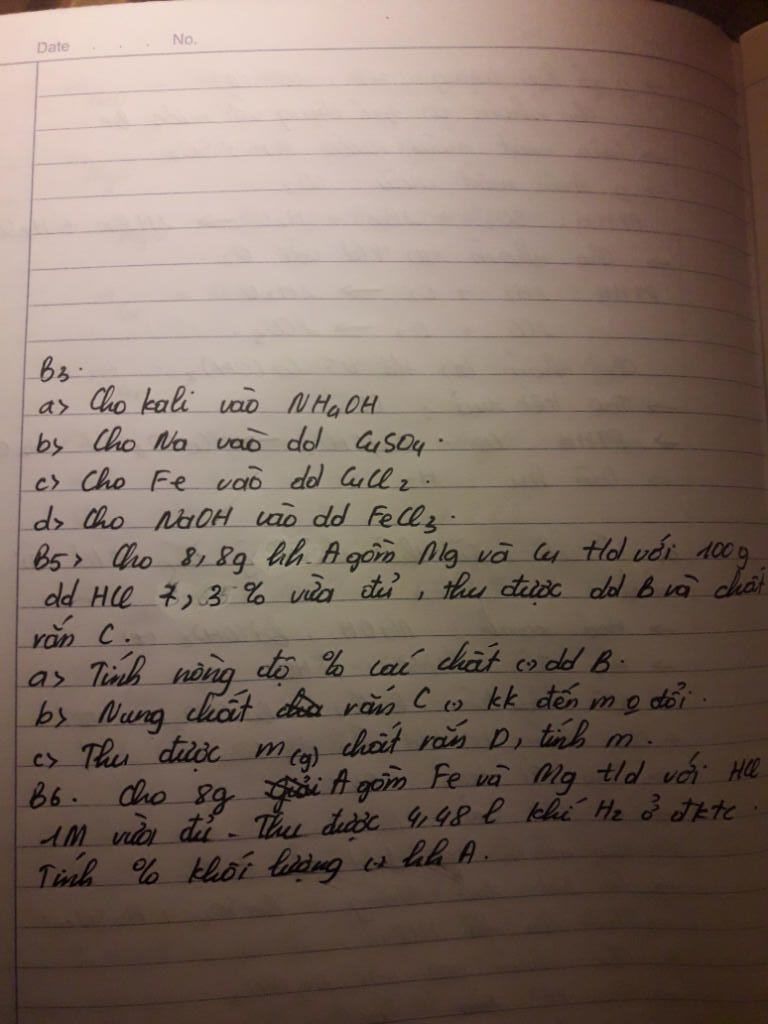 Date . . . No.
B3.
a> Cho kali vào NH4OH
b> Cho Na vào dd CuSO4.
c> Cho Fe vào dd CuCl2.
d> Cho NaOH vào dd FeCl3.
B5> Cho 8,8g hh A gồm Mg và Cu t/d với 100g
dd HCl 7,3% vừa đủ, thu được dd B và chất
rắn C.
a> Tính nồng độ % các chất dd B.
b> Nung chất rắn C kk đến m o đổi.
c> Thu được m(g) chất rắn D, tính m.
B6. Cho 8g A gồm Fe và Mg t/d với HCl
1M vừa đủ - Thu được 4,48 l khí H2 ở đktc.
Tính % khối lượng hh A.